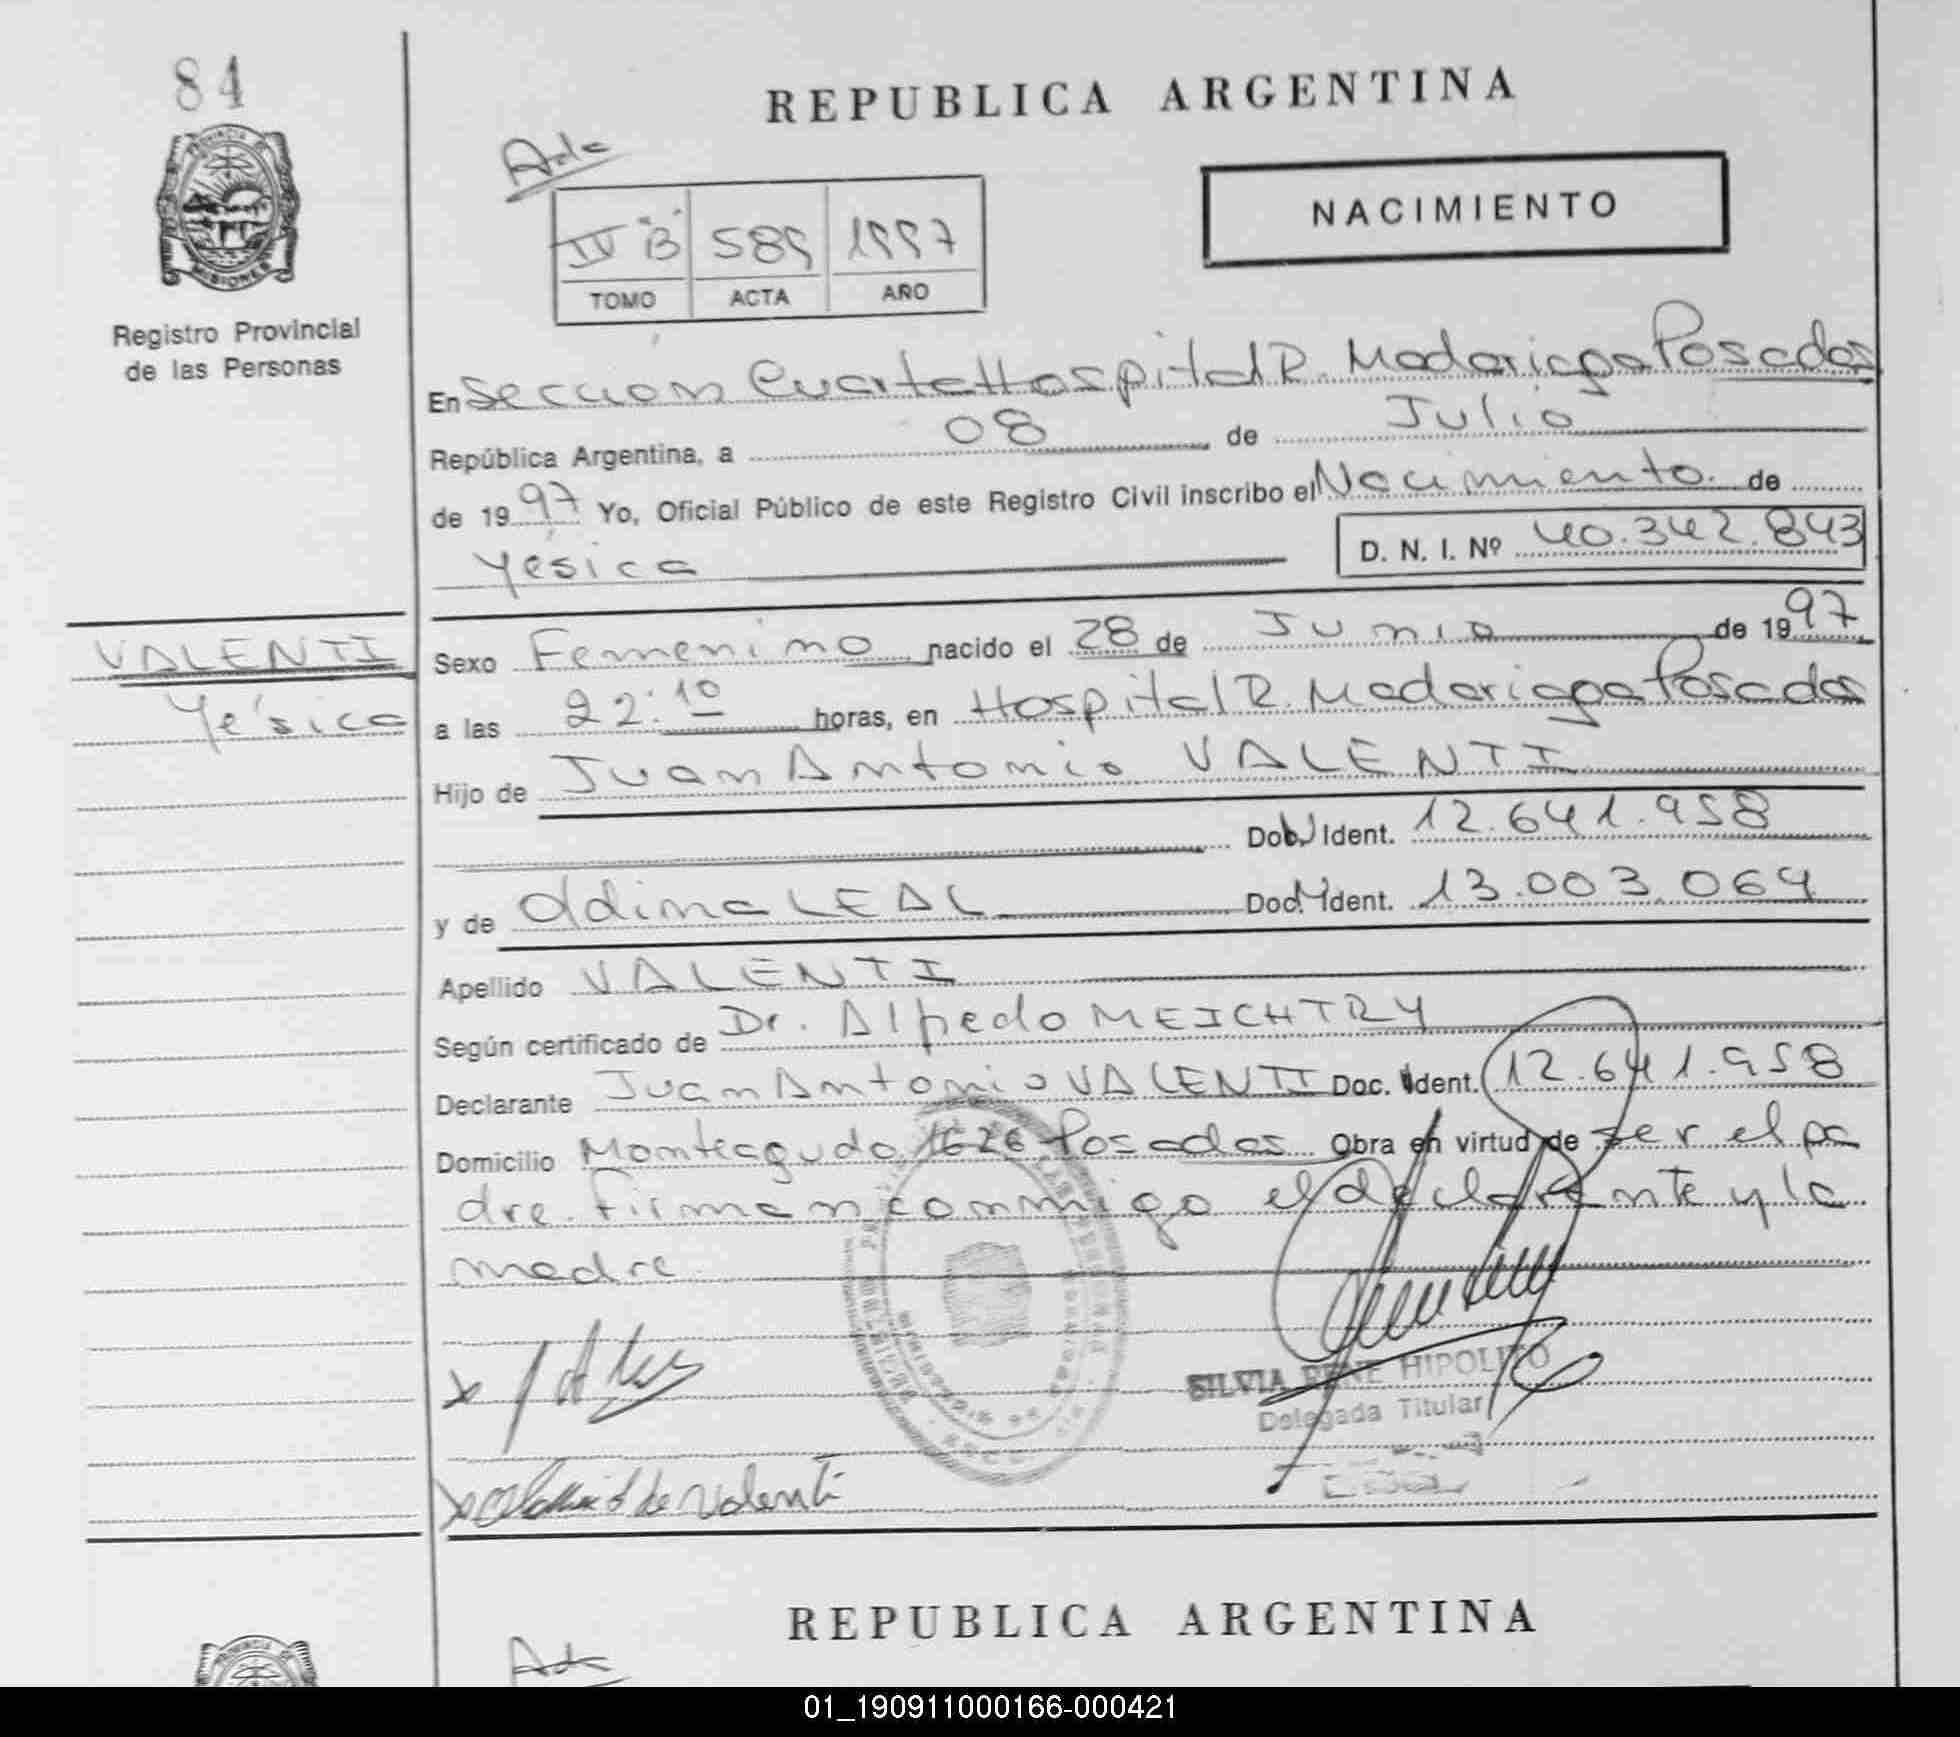 84
PROVINCIA DE
MISIONES
Registro Provincial
de las Personas
VALENTI
Yésica
REPUBLICA ARGENTINA
NACIMIENTO
IV "B" 589 1997
TOMO ACTA AÑO
En Seccion Cuarta Hospital R. Madariaga Posadas
República Argentina, a 08 de Julio
de 1997 Yo, Oficial Público de este Registro Civil inscribo el Nacimiento de
Yésica D. N. I. Nº 40.342.843
Sexo Femenino nacido el 28 de Junio de 1997
a las 22:10 horas, en Hospital R. Madariaga Posadas
Hijo de Juan Antonio VALENTI
Doc. Ident. 12.641.958
y de Odina LEAL Doc. Ident. 13.003.064
Apellido VALENTI
Según certificado de Dr. Alfredo MEICHTRY
Declarante Juan Antonio VALENTI Doc. Ident. 12.641.958
Domicilio Monteagudo 1626 Posadas Obra en virtud de ser el pa
dre. Firman conmigo el declarante y la
madre
SILVIA RENE HIPOLITO
Delegada Titular
de Valenti
REPUBLICA ARGENTINA
PROVINCIA
01_190911000166-000421